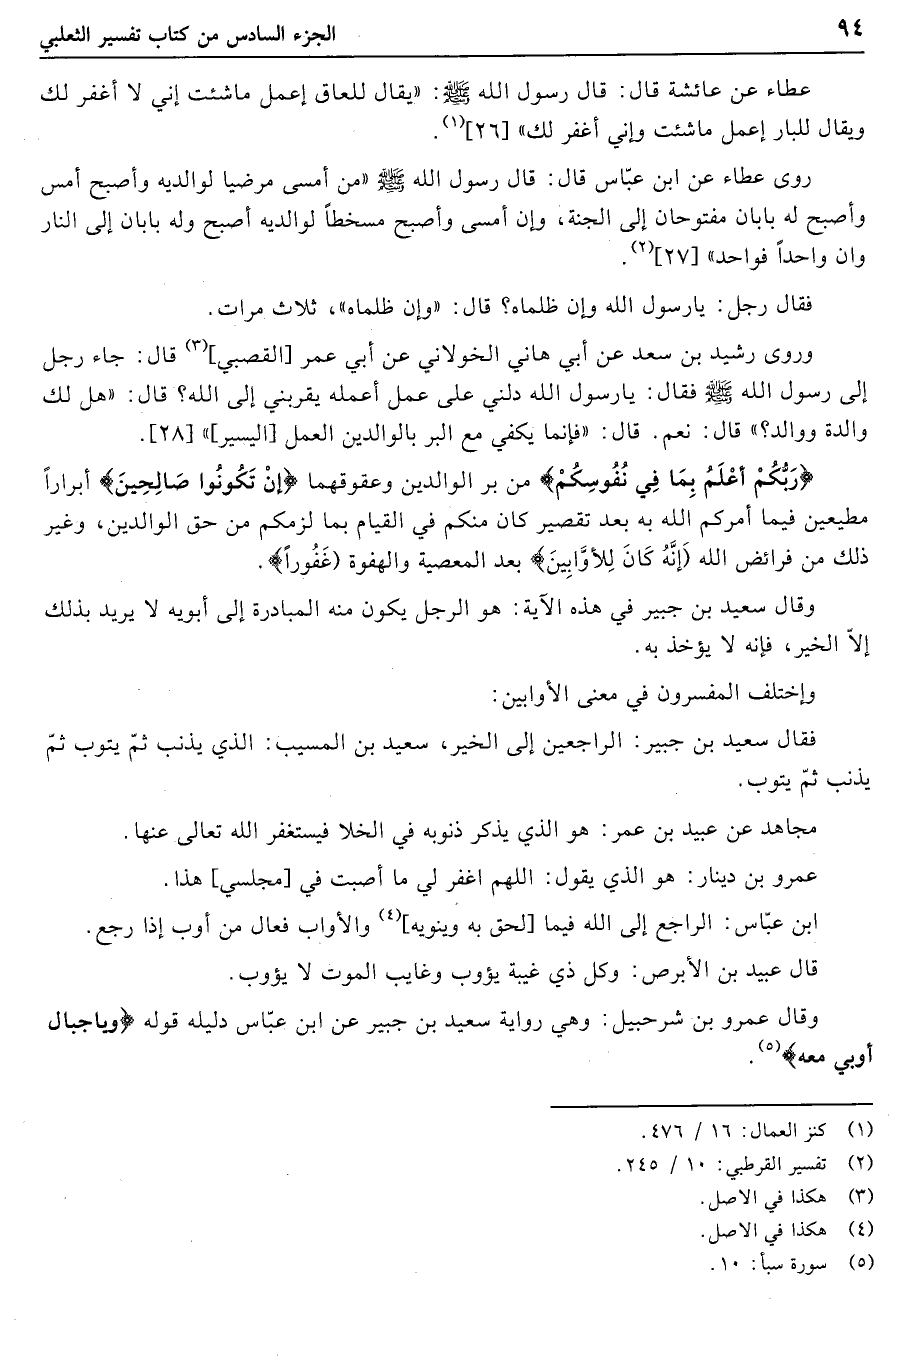 ٩٤
الجزء السادس من كتاب تفسير الثعلبي
عطاء عن عائشة قال: قال رسول الله ﷺ: «يقال للعاق إعمل ماشئت إني لا أغفر لك
ويقال للبار إعمل ماشئت وإني أغفر لك» [٢٦](١).
روى عطاء عن ابن عبّاس قال: قال رسول الله ﷺ «من أمسى مرضيا لوالديه وأصبح أمس
وأصبح له بابان مفتوحان إلى الجنة، وإن أمسى وأصبح مسخطاً لوالديه أصبح وله بابان إلى النار
وان واحداً فواحد» [٢٧](٢).
فقال رجل: يارسول الله وإن ظلماه؟ قال: «وإن ظلماه»، ثلاث مرات.
وروى رشيد بن سعد عن أبي هاني الخولاني عن أبي عمر [القصبي](٣) قال: جاء رجل
إلى رسول الله ﷺ فقال: يارسول الله دلني على عمل أعمله يقربني إلى الله؟ قال: «هل لك
والدة ووالد؟» قال: نعم. قال: «فإنما يكفي مع البر بالوالدين العمل [اليسير]» [٢٨].
﴿رَبُّكُمْ أعْلَمُ بِمَا فِي نُفُوسِكُمْ﴾ من بر الوالدين وعقوقهما ﴿إنْ تَكُونُوا صَالِحِينَ﴾ أبراراً
مطيعين فيما أمركم الله به بعد تقصير كان منكم في القيام بما لزمكم من حق الوالدين، وغير
ذلك من فرائض الله (إنَّهُ كَانَ لِلأوَّابِينَ﴾ بعد المعصية والهفوة (غَفُوراً﴾.
وقال سعيد بن جبير في هذه الآية: هو الرجل يكون منه المبادرة إلى أبويه لا يريد بذلك
إلاّ الخير، فإنه لا يؤخذ به.
وإختلف المفسرون في معنى الأوابين:
فقال سعيد بن جبير: الراجعين إلى الخير، سعيد بن المسيب: الذي يذنب ثمّ يتوب ثمّ
يذنب ثمّ يتوب.
مجاهد عن عبيد بن عمر: هو الذي يذكر ذنوبه في الخلا فيستغفر الله تعالى عنها.
عمرو بن دينار: هو الذي يقول: اللهم اغفر لي ما أصبت في [مجلسي] هذا.
ابن عبّاس: الراجع إلى الله فيما [لحق به وينويه](٤) والأواب فعال من أوب إذا رجع.
قال عبيد بن الأبرص: وكل ذي غيبة يؤوب وغايب الموت لا يؤوب.
وقال عمرو بن شرحبيل: وهي رواية سعيد بن جبير عن ابن عبّاس دليله قوله ﴿وياجبال
أوبي معه﴾(٥).
(١) كنز العمال: ١٦ / ٤٧٦.
(٢) تفسير القرطبي: ١٠ / ٢٤٥.
(٣) هكذا في الاصل.
(٤) هكذا في الاصل.
(٥) سورة سبأ: ١٠.